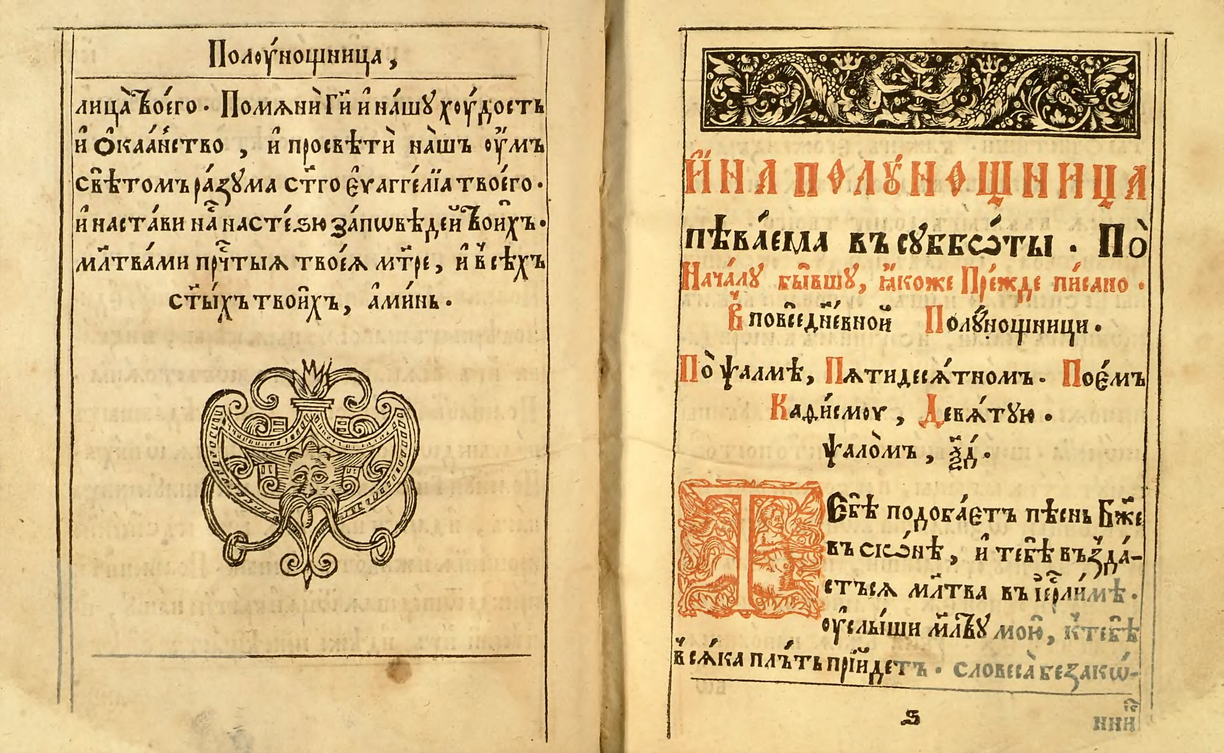 Полѹ́нощница,
лица̀ Твоего̀ . Помѧнѝ Гⷭ҇и и҆ на́шꙋ хꙋ́дость
и҆ Ѻ҆каѧ́нство , и҆ просвѣтѝ на́шъ оу҆́мъ
свѣ́томъ ра́зꙋма ст҃го є҆ѵаггелїа твоего̀ .
и҆ наста́ви на̀ на сте́зю за́пѡвѣдей Твои́хъ .
мл҃твами прчⷭ҇тыѧ твоеѧ̀ мт҃ре, и҆ всѣ́хъ
ст҃ы́хъ твои́хъ, а҆ми́нь .
И҆́НА ПОЛꙊ́НОЩНИЦА
пѣва́ема въ сꙋббѡ́ты . По̀
Нача́лꙋ бы́вшꙋ, ꙗ҆́коже Пре́жде писано .
В повседне́вной Полꙋ́нощници .
По̀ ѱалмѣ̀, Пѧтидесѧ́тномъ . Пое́мъ
Каѳи́смѹ, Девѧ́тꙋю .
ѱало́мъ , ѯ҃д .
Тебѣ̀ подоба́етъ пѣ́снь Бж҃е
въ сїѡ́нѣ, и҆ тебѣ̀ възда́-
стъсѧ мл҃тва въ і҆ерⷭ҇ли́мѣ .
оу҆слы́ши мл҃твꙋ мою̀, к тебѣ̀
всѧ́ка пл꙯ть прїи́детъ . словеса̀ беззакѡ́-
ѕ
нни